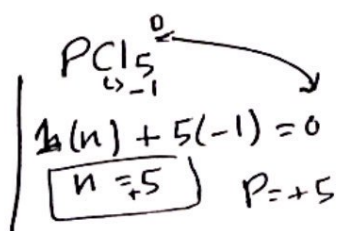 PCl5 0
↳ -1
1(n) + 5(-1) = 0
n = +5 P = +5